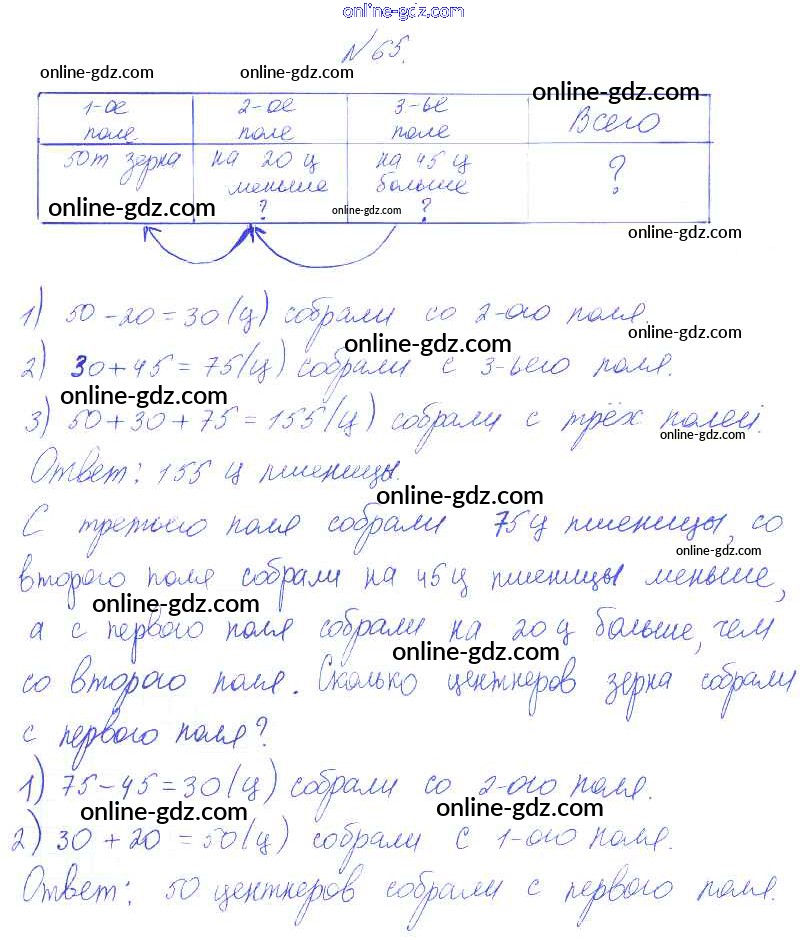 online-gdz.com
№65.
online-gdz.com online-gdz.com online-gdz.com
1-ое поле 2-ое поле 3-ье поле Всего
50т зерна на 20 ц меньше ? на 45 ц больше ? ?
online-gdz.com online-gdz.com online-gdz.com
1) 50-20=30(ц) собрали со 2-ого поля.
online-gdz.com online-gdz.com
2) 30+45=75(ц) собрали с 3-ьего поля.
online-gdz.com
3) 50+30+75=155(ц) собрали с трёх полей.
online-gdz.com
Ответ: 155 ц пшеницы.
online-gdz.com
С третьего поля собрали 75ц пшеницы, со
online-gdz.com
второго поля собрали на 45ц пшеницы меньше,
online-gdz.com
а с первого поля собрали на 20ц больше, чем
online-gdz.com
со второго поля. Сколько центнеров зерна собрали
с первого поля?
1) 75-45=30(ц) собрали со 2-ого поля.
online-gdz.com online-gdz.com
2) 30+20=50(ц) собрали с 1-ого поля.
Ответ: 50 центнеров собрали с первого поля.